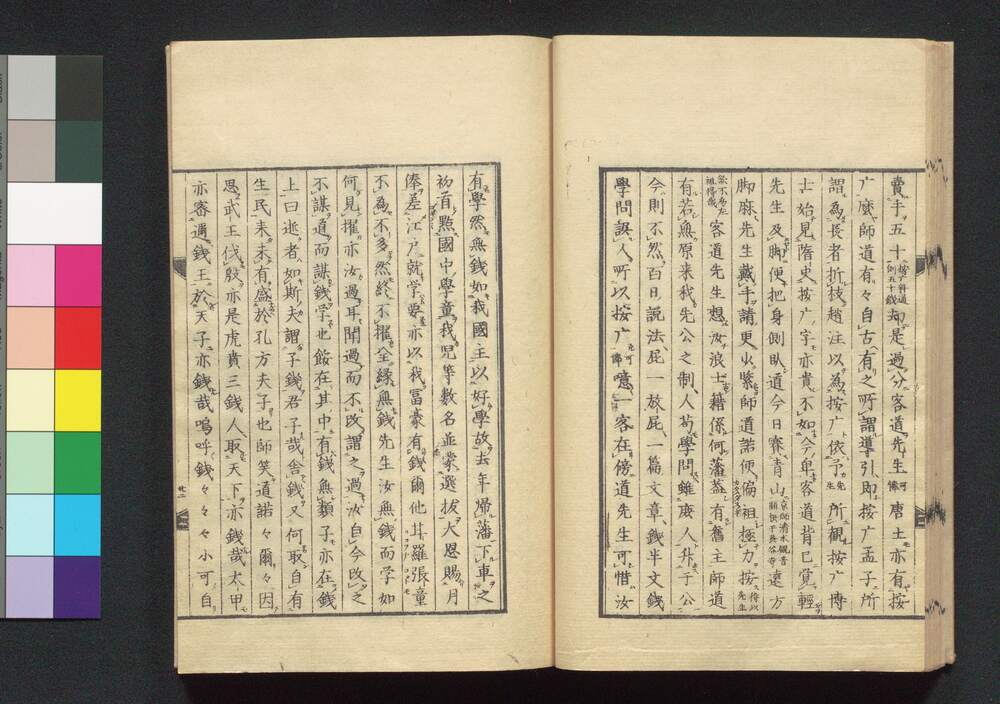 賣手五十按广科通例五十錢却是過分客道先生可憐唐土亦有按
广麼師道有々自古有之所謂導引即按广孟子所
謂為長者折枝趙注以為按广依予先生所觀按广博
士始見隋史按广字亦貴不如今卑客道背已覺輕
先生及脚便把身側臥道今日賽青山京師清水觀音願供于長谷寺遠方
脚麻先生戴手請更火緊師道諾便偏袒極力按得以先生
衆不為左袒得哉客道先生想汝浪士籍係何藩蓋有舊主師道
有若無原来我先公之制人苟學問雖庶人升于公
今則不然百日説法屁一放屁一篇文章錢半文錢
學問誤人所以按广可憐噫一客在傍道先生可惜汝
有學然無錢如我國主以好學故去年帰藩下車之
初首點國中學童我児等數名並蒙選拔大恩賜月
俸差江戸就学要亦以我冨豪有錢爾他耳羅張童
不為不多然終不擢全縁無錢先生汝無錢而学如
何見擢亦汝過耳聞過而不改謂之過汝自今改之
不謀道而謀錢学也餒在其中有錢無類子亦在錢
上曰逝者如斯夫謂子錢君子哉舎錢又何取自有
生民来未有盛於孔方夫子也師笑道諾々爾々因
思武王伐殷亦是虎賁三錢人取天下亦錢哉太甲
亦審適錢王於天子亦錢哉嗚呼錢々々々小可自
廿二